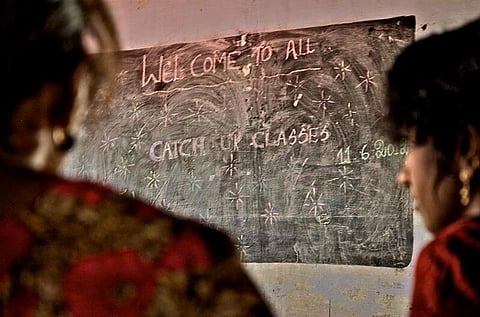 WELCOME TO ALL
CATCH UP CLASSES
11.6.2012